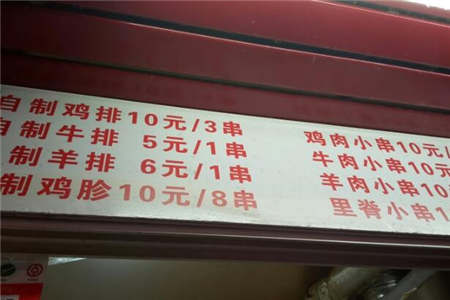 自制鸡排10元/3串
自制牛排 5元/1串
制羊排 6元/1串
制鸡胗10元/8串
鸡肉小串10元/
牛肉小串10元
羊肉小串10
里脊小串1